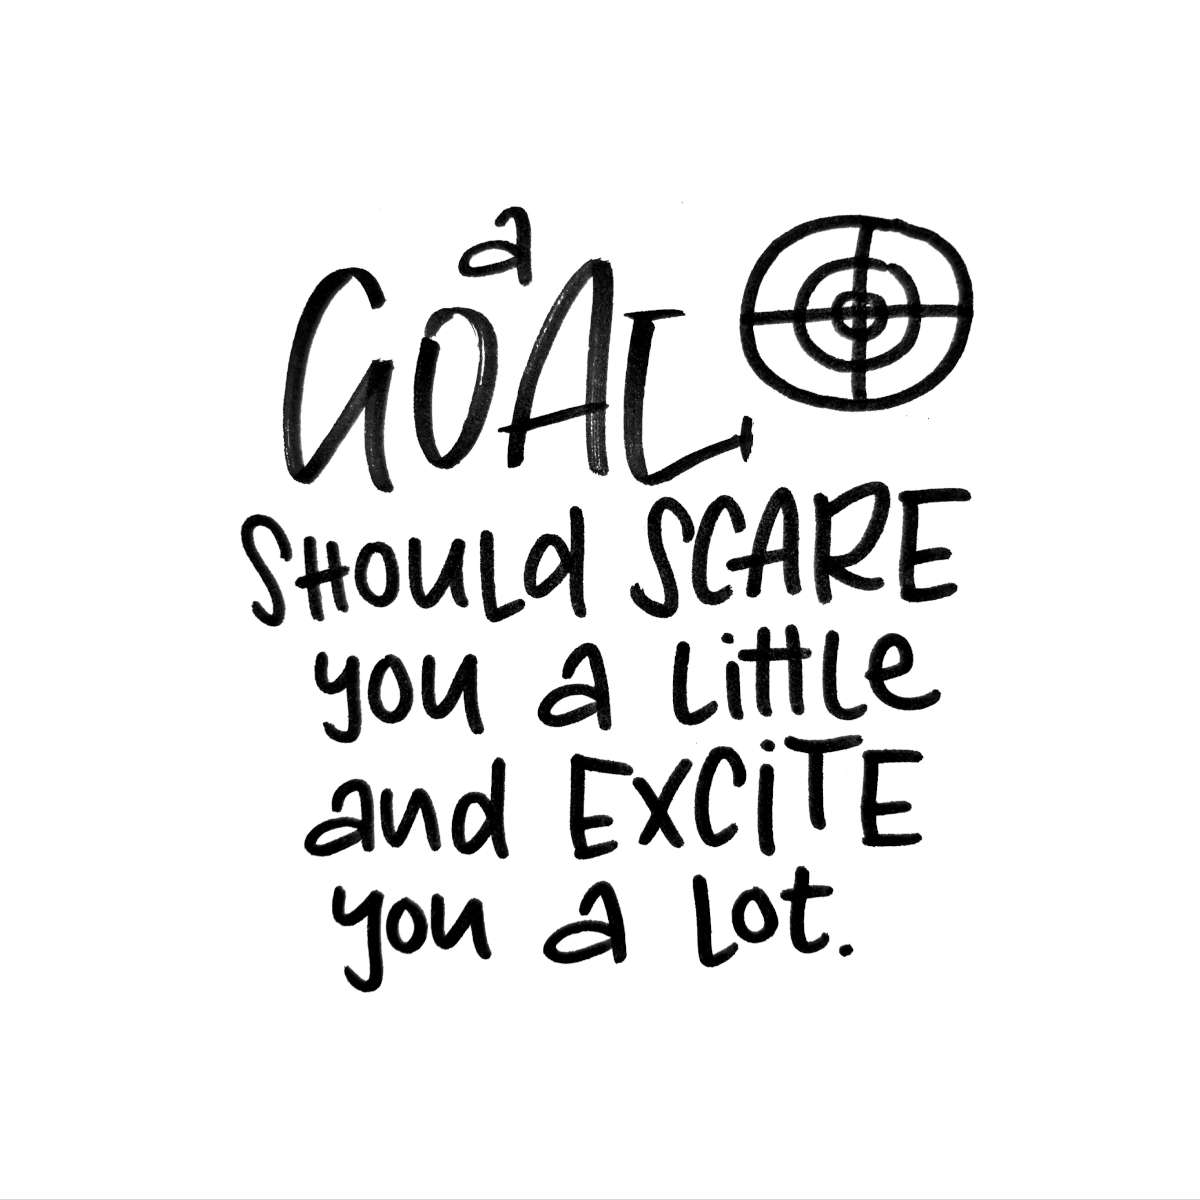 a
GOAL
SHOULd SCARE
you a little
and EXCiTE
you a lot.